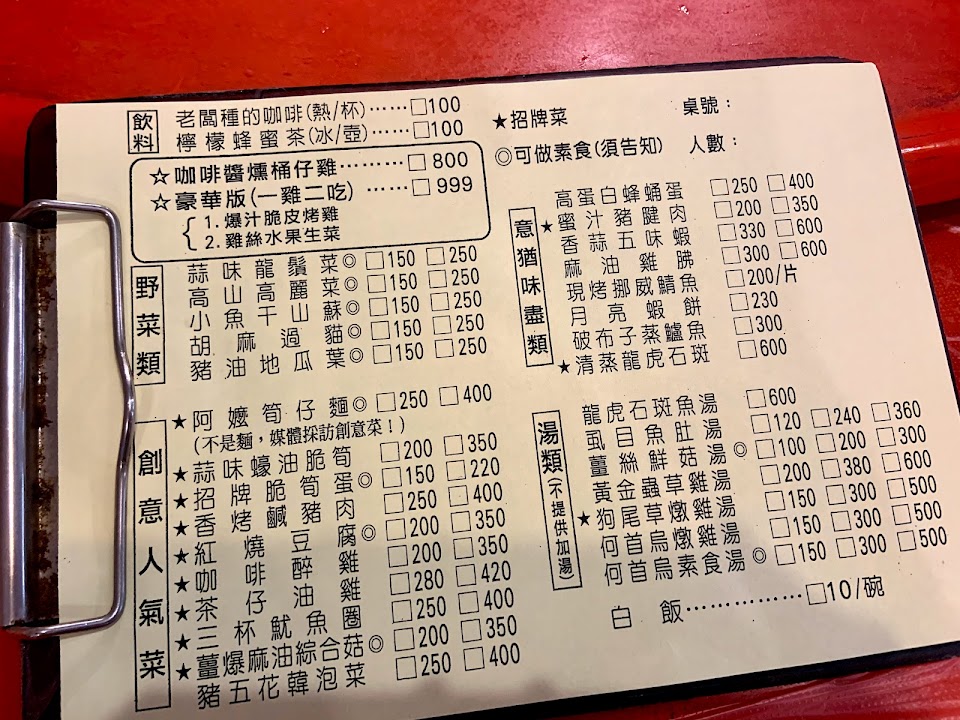 飲料
老闆種的咖啡(熱/杯)……□100
檸檬蜂蜜茶(冰/壺)……□100
☆咖啡醬燻桶仔雞………□800
☆豪華版(一雞二吃)……□999
1.爆汁脆皮烤雞
2.雞絲水果生菜
野菜類
蒜味龍鬚菜◎□150 □250
高山高麗菜◎□150 □250
小魚干山蘇◎□150 □250
胡麻過貓◎□150 □250
豬油地瓜葉◎□150 □250
創意人氣菜
★阿嬤筍仔麵◎□250 □400
(不是麵，媒體採訪創意菜！)
★蒜味蠔油脆筍 □200 □350
★招牌脆筍蛋◎□150 □220
★香烤鹹豬肉 □250 □400
★紅燒豆腐◎□200 □350
★咖啡醉雞 □200 □350
★茶仔油雞 □280 □420
★三杯魷魚圈 □250 □400
★薑爆麻油綜合菇◎□200 □350
豬五花韓泡菜 □250 □400
★招牌菜
桌號：
◎可做素食(須告知)
人數：
意猶味盡類
高蛋白蜂蛹蛋 □250 □400
★蜜汁豬腱肉 □200 □350
香蒜五味蝦 □330 □600
麻油雞胇 □300 □600
現烤挪威鯖魚 □200/片
月亮蝦餅 □230
破布子蒸鱸魚 □300
★清蒸龍虎石斑 □600
湯類(不提供加湯)
龍虎石斑魚湯 □600
虱目魚肚湯 □120 □240 □360
薑絲鮮菇湯◎□100 □200 □300
黃金蟲草雞湯 □200 □380 □600
★狗尾草燉雞湯 □150 □300 □500
何首烏燉雞湯 □150 □300 □500
何首烏素食湯◎□150 □300 □500
白飯……………□10/碗